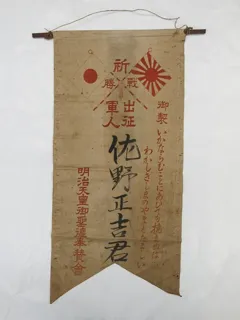 祈戦勝
出征軍人
御製
いかならむことにあひても撓まぬは
わかしきしまのやまとたましひ
佐野正吉君
明治天皇御聖徳奉